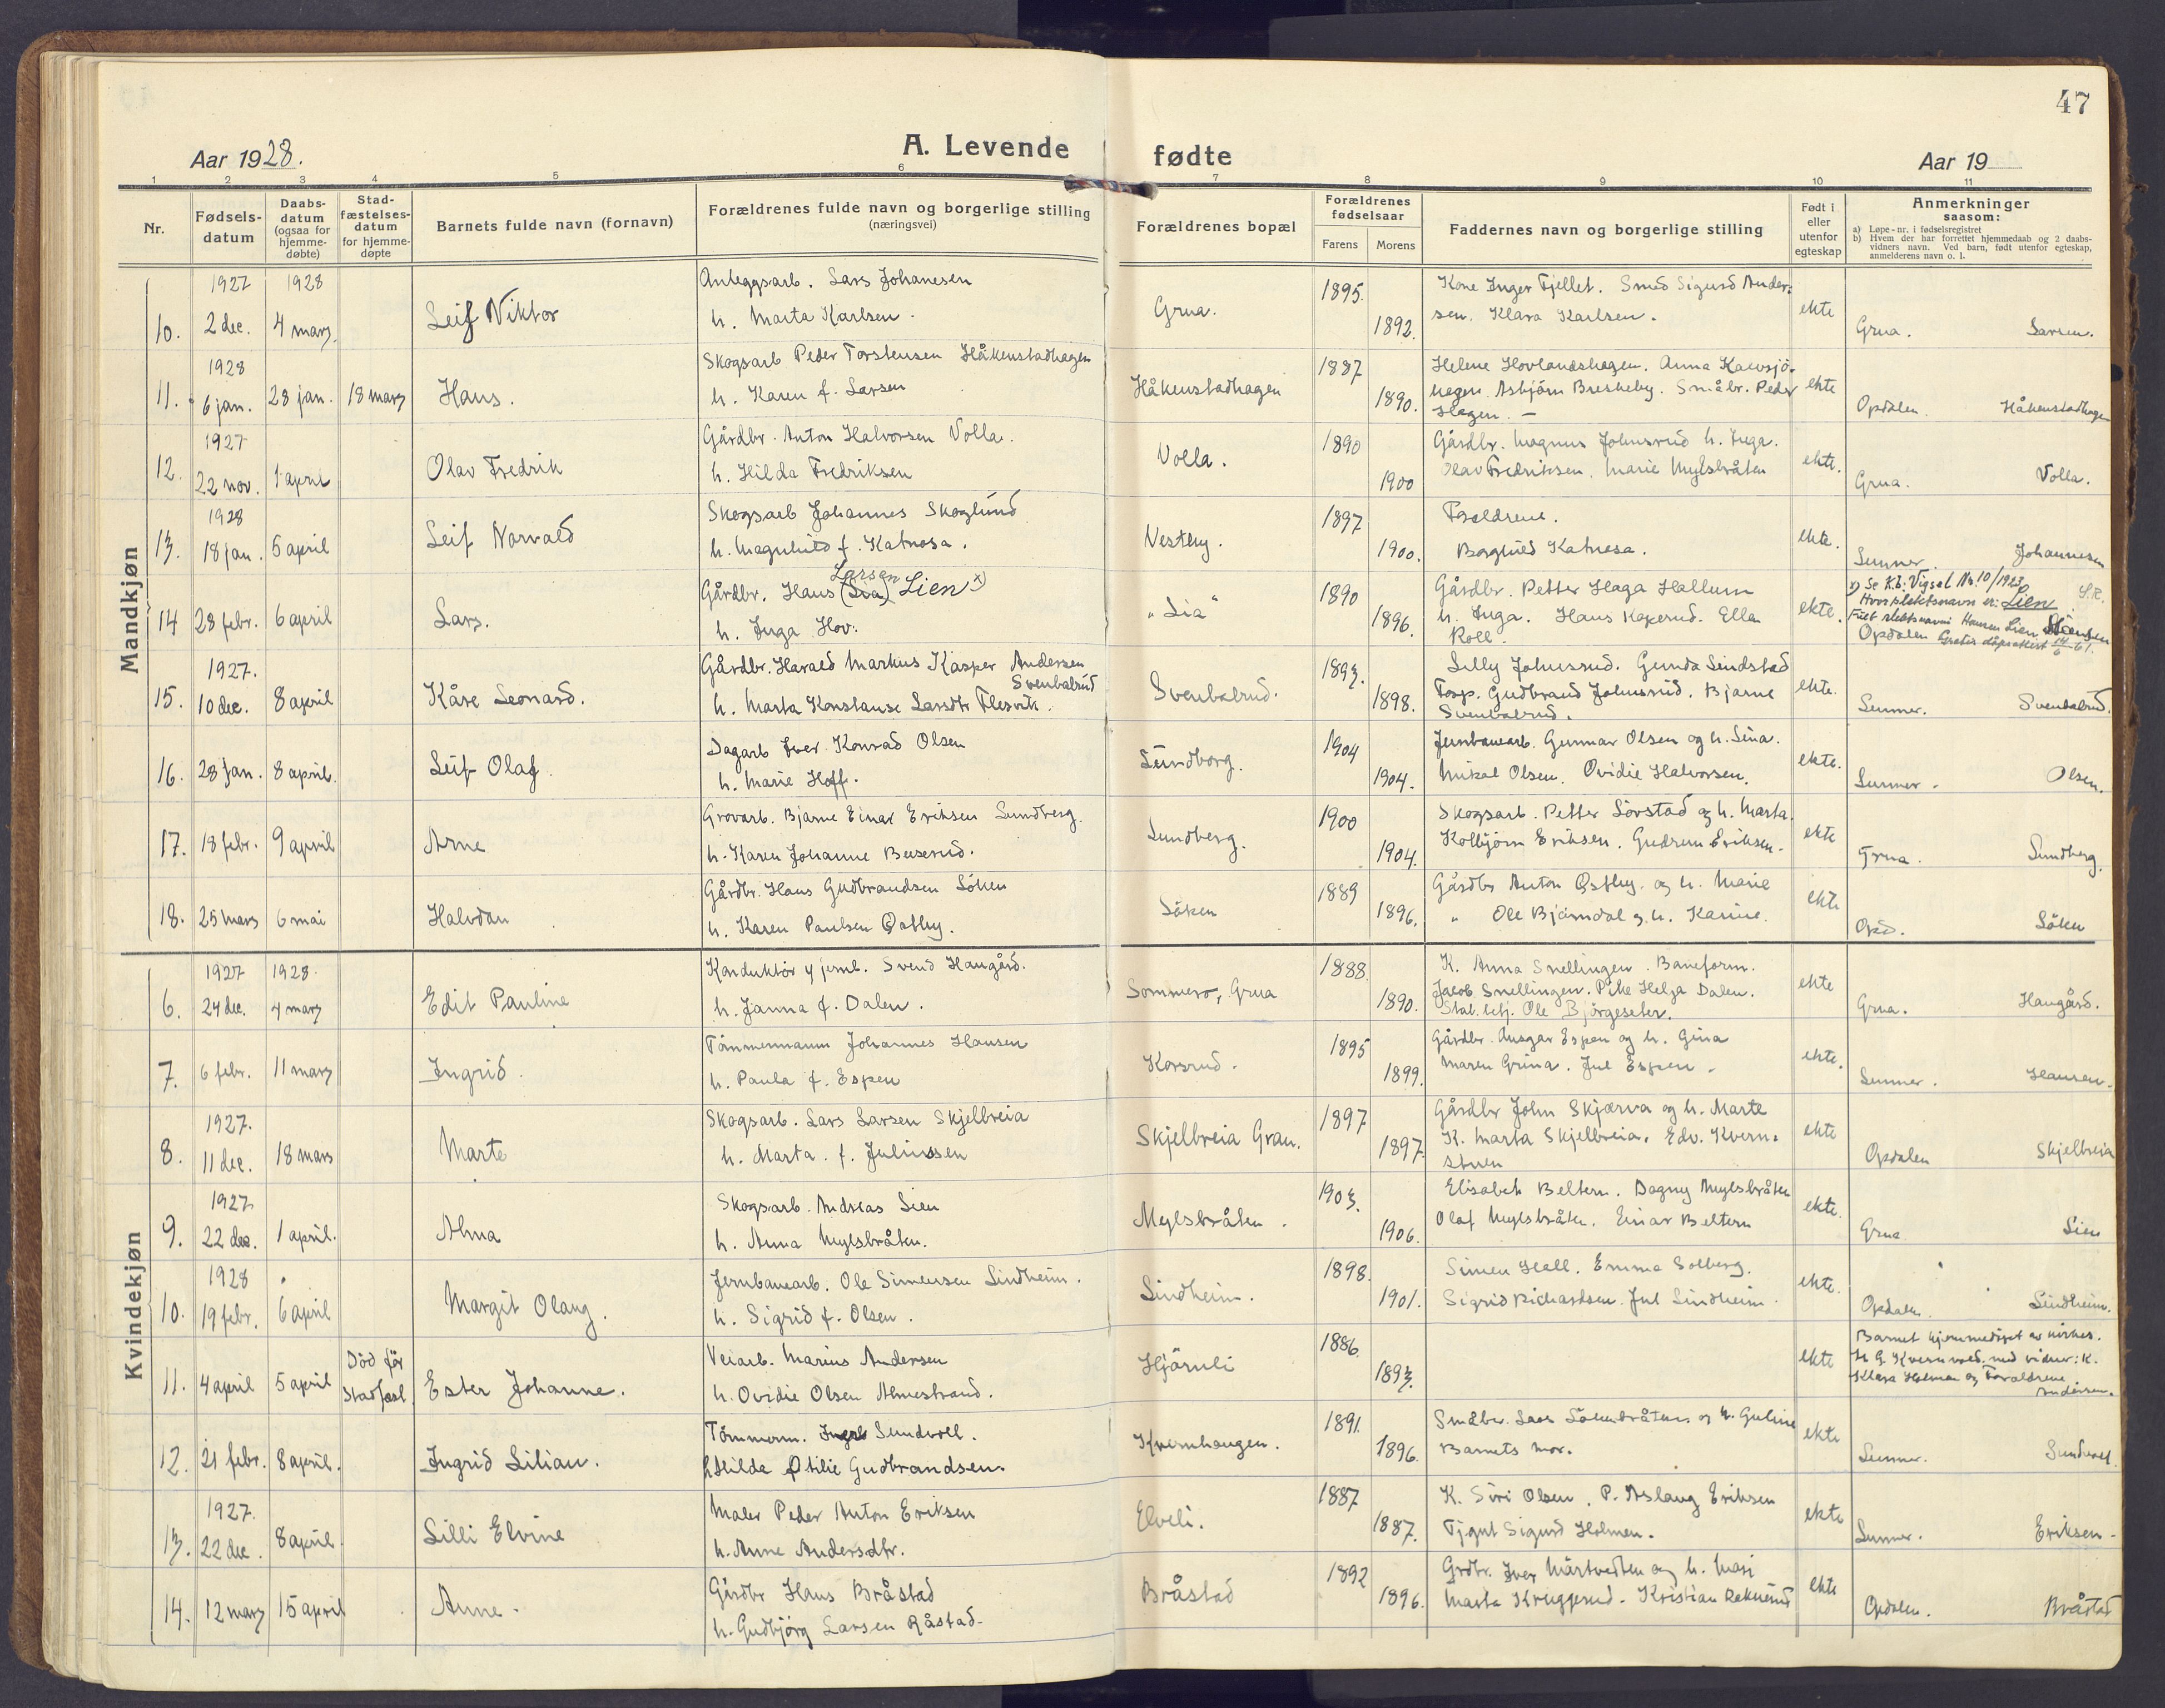 47
Aar 1928.
A. Levende fødte
Aar 19
1 2 3 4 5 6 7 8 9 10 11
Nr.
Fødsels-
datum
Daabs-
datum
(ogsaa for
hjemme-
døbte)
Stad-
fæstelses-
datum
for hjemme-
døpte
Barnets fulde navn (fornavn)
Forældrenes fulde navn og borgerlige stilling
(næringsvei)
Forældrenes bopæl
Forældrenes
fødselsaar
Farens Morens
Faddernes navn og borgerlige stilling
Født i
eller
utenfor
egteskap
Anmerkninger
saasom:
a) Løpe-nr. i fødselsregistret
b) Hvem der har forrettet hjemmedaab og 2 daabs-
vidners navn. Ved barn, født utenfor egteskap,
anmelderens navn o. l.
Mandkjøn
1927 1928
10. 2 dec. 4 mars.
Leif Viktor
Anleggsarb. Lars Johanesen
h. Marta Karlsen.
Grua.
1895.
1892.
Kone Inger Fjellet. Smed Sigurd Ander-
sen. Klara Karlsen.
ekte
Grua. Larsen.
1928
11. 6 jan. 28 jan. 18 mars
Hans.
Skogsarb Peder Torstensen Håkenstadhagen
h. Karen f. Larsen
Håkenstadhagen
1887
1890.
Helene Hovlandshagen. Anna
hagen. Asbjørn Breskeby. Småbr. Peder
Hagen. —
ekte
Opdalen. Håkenstadhagen
1927
12. 22 nov. 1 april
Olav Fredrik
Gårdbr. Anton Halvorsen Volla.
h. Hilda Fredriksen
Volla.
1890
1900
Gårdbr. Magnus Johnsrud h. Inga.
Olav Fredriksen. Marie Mylsbråten
ekte.
Grua. Volla.
1928
13. 18 jan. 5 april
Leif Norvald
Skogsarb Johannes Skoglund
h. Magnhild f. Katnosa.
Vestby.
1897
1900.
Foreldrene.
Borghild Katnosa.
ekte.
Lunner. Johannesen
14 28 febr. 6 april
Lars.
Larsen
Gårdbr. Hans (Lia) Lien x)
h. Inga Hov.
"Lia"
1890
1896.
Gårdbr. Petter Haga Hallum
h. Inga. Hans Kapsrud. Ella
Roll.
ekte.
x) Se Kb. Vigsel No. 10/1923
Hvor slektsnavn er: Lien. S.R.
Opdalen Gratis dåpsattest 14/6 61.
1927.
15. 10 dec. 8 april
Kåre Leonard.
Gårdbr. Harald Markus Kasper Andersen
Svenbalrud
h. Marta Konstanse Larsdtr Flesvik.
Svenbalrud.
1893.
1898.
Lilly Johnsrud. Gunda Lindstad
Forp. Gudbrand Johnsrud. Bjarne
Svenbalrud.
ekte.
Lunner. Svenbalrud.
16. 28 jan. 8 april.
Leif Olaf.
Dagarb Iver Konrad Olsen
h. Marie Hoff.
Lundborg.
1904
1904.
Jernbanearb. Gunnar Olsen og h. Lina.
Mikal Olsen. Ovidie Halvorsen.
ekte.
Lunner. Olsen.
17. 18 febr. 9 april
Arne
Grovarb. Bjarne Einar Eriksen Lundberg.
h. Karen Johanne Buserud.
Lundberg.
1900
1904.
Skogsarb. Petter Lövstad og h. Marta.
Kolbjörn Eriksen. Gudrun Eriksen.
ekte
Grua. Lundberg.
18. 25 mars 6 mai
Halvdan
Gårdbr. Hans Gudbrandsen Löken
h. Karen Paulsen Østby.
Löken
1889
1896.
Gårdbr Anton Østby. og h. Marie
" Ole Bjørndal og h. Karine.
ekte
Opd. Löken
Kvindekjøn
1927 1928.
6. 24 dec. 4 mars
Edit Pauline
Konduktör v jernb. Svend Haugård.
h. Janna f. Dalen.
Sommero, Grua
1888.
1890.
K. Anna Snellingen. Baneform.
Jacob Snellingen. Pike Helga Dalen.
Stat. betj. Ole Björgeseter.
ekte
Grua. Haugård.
7. 6 febr. 11 mars
Ingrid.
Tömmermann Johannes Hansen
h. Paula f. Espen
Korsrud.
1895
1899.
Gårdbr. Ansgar Espen og h. Gina
Maren Grina. Jul Espen.
ekte.
Lunner. Hansen.
1927.
8. 11 dec. 18 mars
Marte
Skogsarb. Lars Larsen Skjelbreia
h. Marta. f. Juliussen
Skjelbreia Gran.
1897
1897.
Gårdbr John Skjærva og h. Marte
K. Marta Skjelbreia. Edv. Kvern-
stuen
ekte
Opdalen Skjelbreia
1927
9. 22 des. 1 april.
Alma
Skogsarb. Andreas Lien
h. Anna Mylsbråten.
Mylsbråten.
1903.
1906.
Elisabet Beltern. Dagny Mylsbråten
Olaf Mylsbråten. Einar Beltern
ekte.
Grua Lien
1928
10. 19 febr. 6 april
Margit Olaug.
Jernbanearb. Ole Simensen Lindheim.
h. Sigrid f. Olsen.
Lindheim.
1898.
1901.
Simen Hall. Emma Solberg.
Sigrid Richardsen. Jul Lindheim.
ekte.
Opdalen. Lindheim.
11. 4 april 5 april
Död för
stadfæst.
Ester Johanne.
Veiarb. Marius Andersen
h. Ovidie Olsen Almestrand.
Hjørnli
1886
1893.
ekte
Barnet hjemmedöpt av kirkes.
H. G. Kvernvold. med vidner: K.
Klara Holman og Foreldrene
Andersen.
12. 21 febr. 8 april.
Ingrid Lilian.
Tömmerm. Sundvoll.
h. Hilda Otilie Gudbrandsen.
Kvernhaugen.
1891.
1896.
Småbr. Lars Lökenbråten og h. Guline
Barnets mor.
ekte
Lunner. Sundvoll
1927.
13. 22 dec. 8 april.
Lilli Elvine
Maler Peder Anton Eriksen
h. Anne Andersdtr.
Elveli.
1887
1887.
K. Siri Olsen. P. Aslaug Eriksen
Tjgut Sigurd Holmen.
ekte
Lunner. Eriksen.
14. 12 mars 15 april
Anne.
Gårdbr Hans Bråstad
h. Gudbjörg Larsen Råstad.
Bråstad
1892
1896.
Grdbr. Iver Mårtvedten og h. Mari
Marta Kruggerud. Kristian Raknerud
ekte
Opdalen. Bråstad